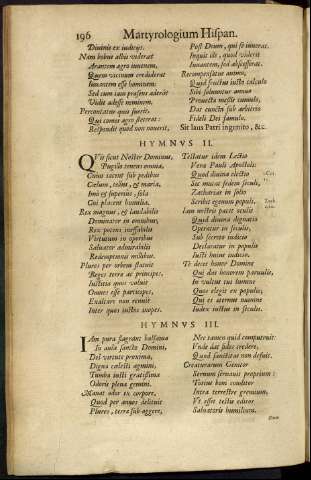 196 Martyrologium Hispan.
Divinis ex iudicijs.
Nam bobus albis viderat
Arantem agro iuvenem,
Quem vicinum crediderat
Iuvantem esse hominem.
Sed cum iam præsens aderit
Vidit adesse neminem.
Percontatus quis fueris
Qui comes agro steterat:
Respondit quod non noverit,
Post Deum, qui se iuverat.
Inquit ille, quod viderit
Iuvantem, sed abscesserat.
Recompensatus animo,
Quid fructus iusto calculo
Sibi solvantur annuo
Proventu messis cumulo,
Dat cunctis sub arbitrio
Fideli Dei famulo.
Sit laus Patri ingenito, &c.
HYMNVS II.
QVis sicut Noster Dominus,
Pugilis tenens omnia,
Cuius iacent sub pedibus
Cœlum, tellus, & maria,
Imò & inferius, sila
Cui placent humilia.
Rex magnus, & laudabilis
Dominator in omnibus,
Rex potens ineffabilis
Virtutum in operibus
Salvator admirabilis
Redemptionis milibus.
Plures per orbem statuit
Reges terræ ac principes.
Iustitia quos voluit
Omnes esse participes,
Exaltare non renuit
Inter quos iustos inopes.
Testatur idem Lectio
Vera Pauli Apostoli:
Quod divina electio
Sic mutat fastum sæculi,
Zachariæ in folio
Scribit exempli populi.
Iam nostris patet oculis
Quod divina dignatio
Operatur in sæculis,
Sub secreto iudicio
Declaratur in populis
Iusti homo iudicio.
Te decet honor Domine
Qui das honorem parvulis,
In vultus tui lumine
Quos elegis ex populis,
Qui es æternus nomine
Iudex iustus in sæculis.
HYMNVS III.
IAm pura flagrant balsama
In aula sancta Domini,
Del virtute proxima,
Digna cælesti agmini,
Tumba iusti gratissima
Odoris plena gemini.
Manat odor ex corpore,
Quod per annos delituit
Plures, terra sub aggere,
Nec tamen quid computruit:
Vnde dat fides credere,
Quod sanctitas non defuit.
Creaturarum Genitor
Servum servavit proprium:
Totius boni conditor
Intra terrestre gremium,
Vt esset testis editor
Salvatoris humilium.